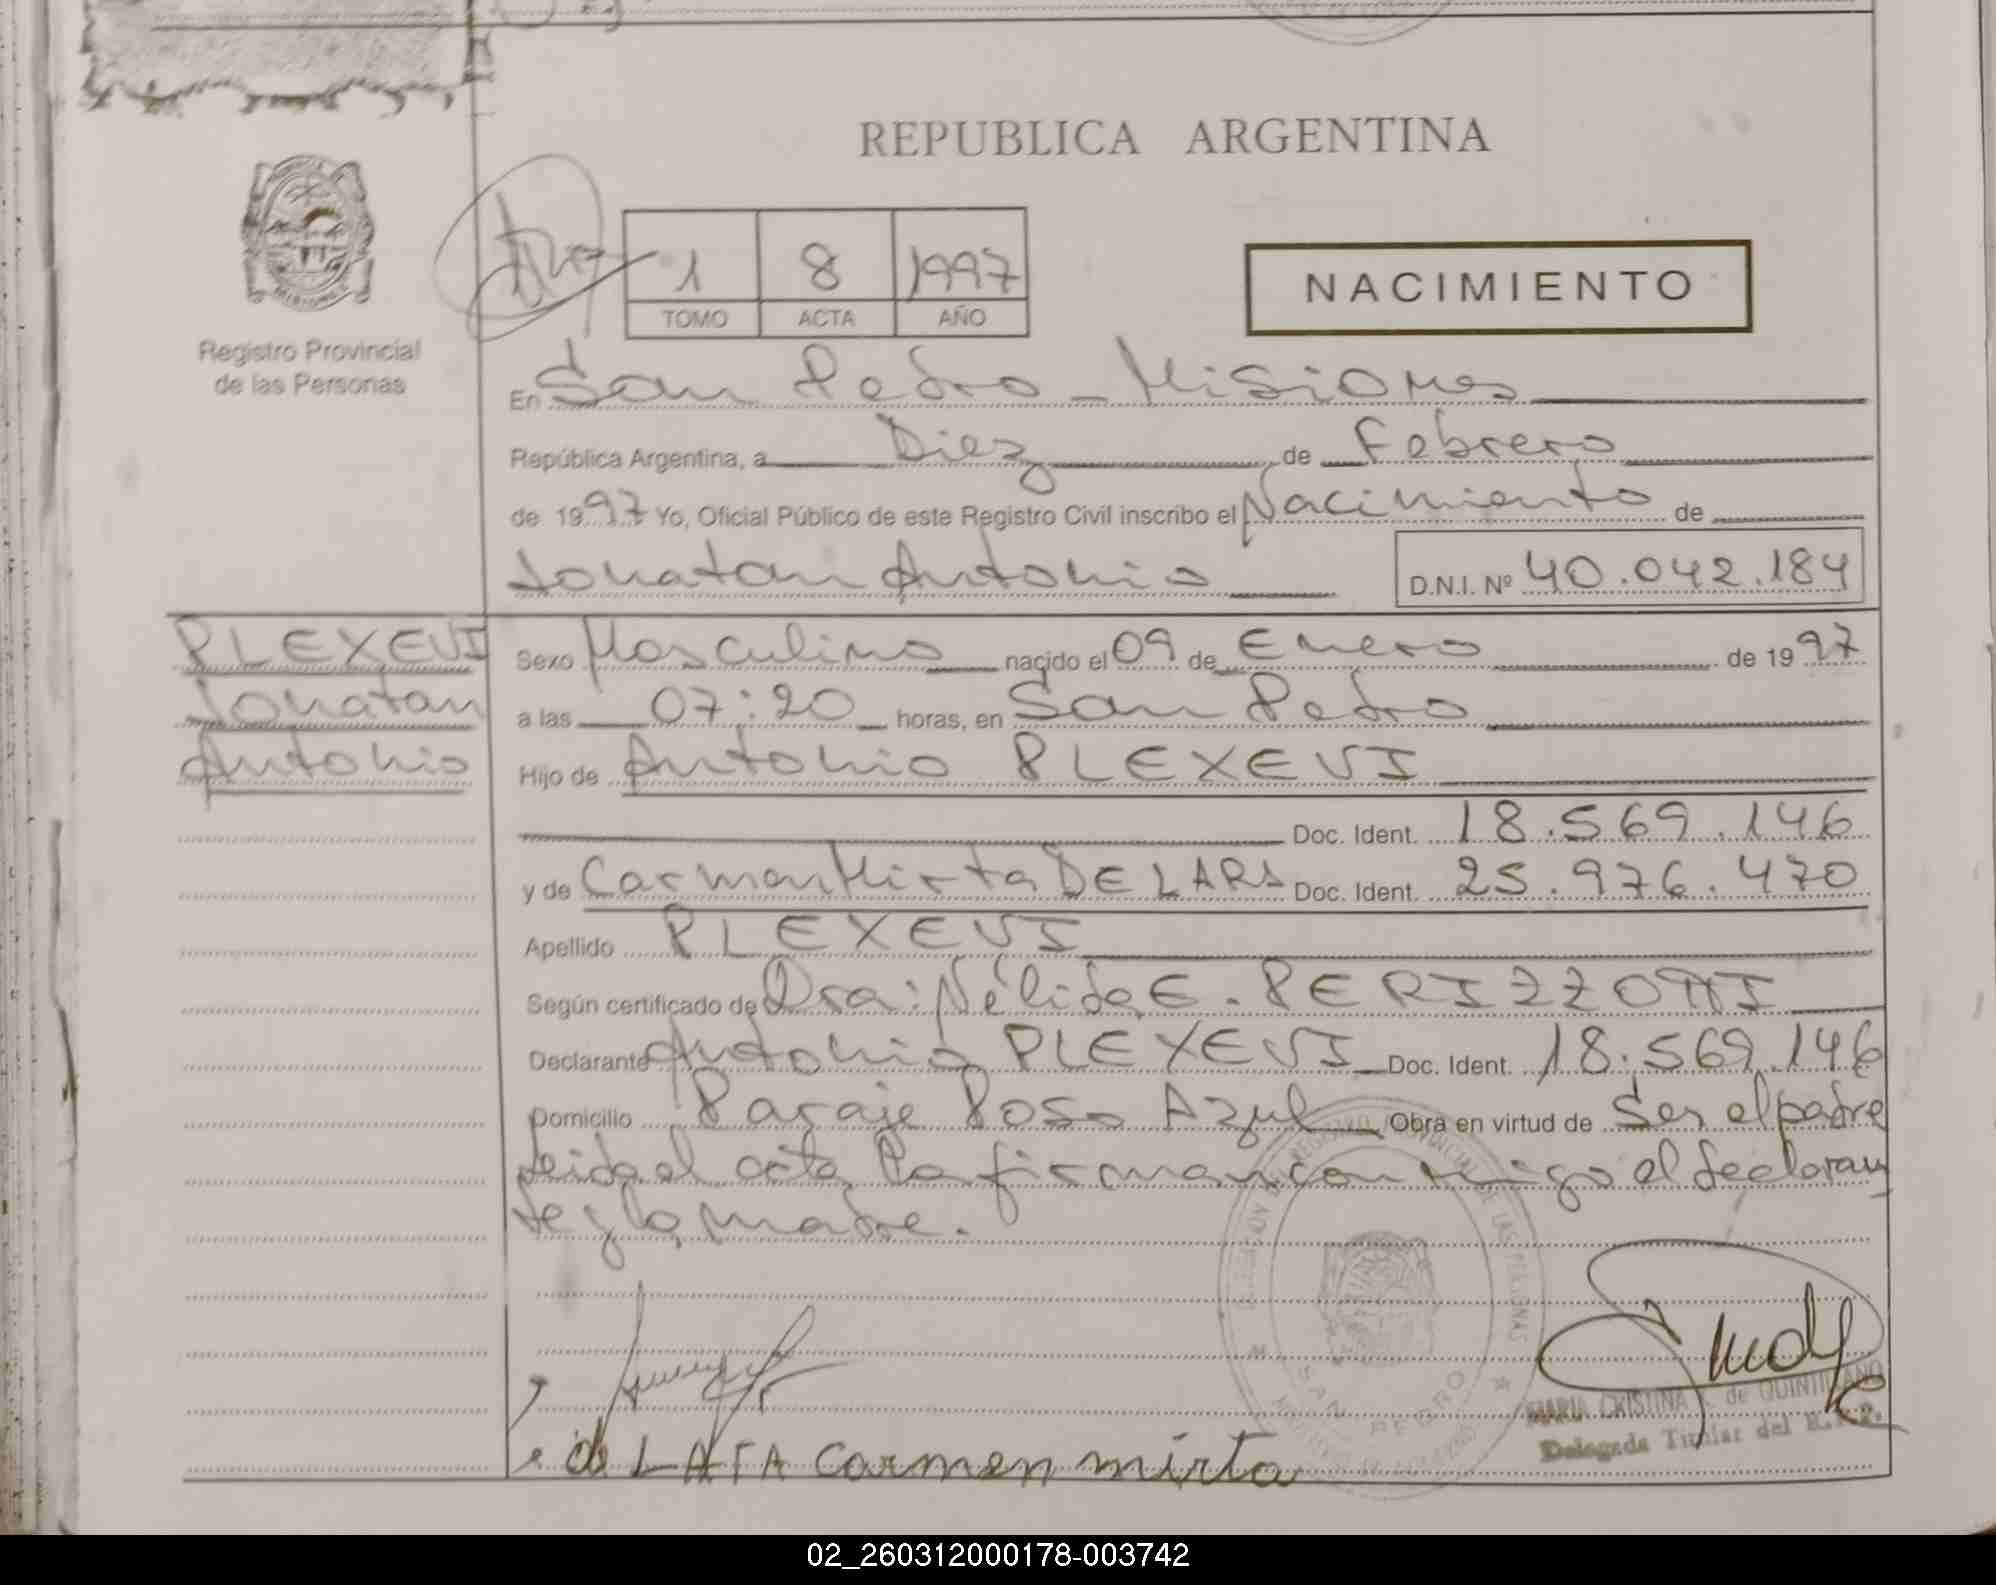 REPUBLICA ARGENTINA
1 8 1997
TOMO ACTA AÑO
NACIMIENTO
Registro Provincial
de las Personas
En San Pedro - Misiones
República Argentina, a Diez de Febrero
de 1997 Yo, Oficial Público de este Registro Civil inscribo el Nacimiento de
Jonatan Antonio D.N.I. Nº 40.042.184
PLEXEVI
Jonatan
Antonio
Sexo Masculino nacido el 09 de Enero de 1997
a las 07:20 horas, en San Pedro
Hijo de Antonio PLEXEVI
Doc. Ident. 18.569.146
y de Carmen Mirta DE LARA Doc. Ident. 25.976.470
Apellido PLEXEVI
Según certificado de Dra: Nélida E. PERIZZOTTI
Declarante Antonio PLEXEVI Doc. Ident. 18.569.146
Domicilio Paraje Poso Azul Obra en virtud de Ser el padre
Leida el acta la firman conmigo el declaran
te y la madre.
MARIA CRISTINA de QUINTILLANO
Delegada Titular del R.P.
de LARA Carmen mirta
SAN PEDRO
02_260312000178-003742